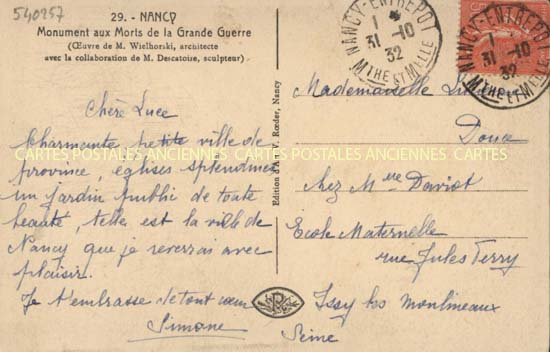 540257
29. - NANCY
Monument aux Morts de la Grande Guerre
(Œuvre de M. Wielhorski, architecte
avec la collaboration de M. Descatoire, sculpteur)
Chère Luce
Charmante petite ville de
province, églises splendides
un jardin public de toute
beauté, telles est la ville de
Nancy que je reverrai avec
plaisir.
Je t'embrasse de tout cœur
Simone
Edition d'Art V. Rœder, Nancy
NANCY-ENTREPOT
1 *
31 -10
32
MTHE ET MELLE
NANCY-ENTREPOT
31 -10
32
MTHE ET MELLE
Mademoiselle
chez Mme Daviot
Ecole Maternelle
rue Jules Ferry
Issy les Moulineaux
Seine
CARTES POSTALES ANCIENNES CARTES POSTALES ANCIENNES CARTES